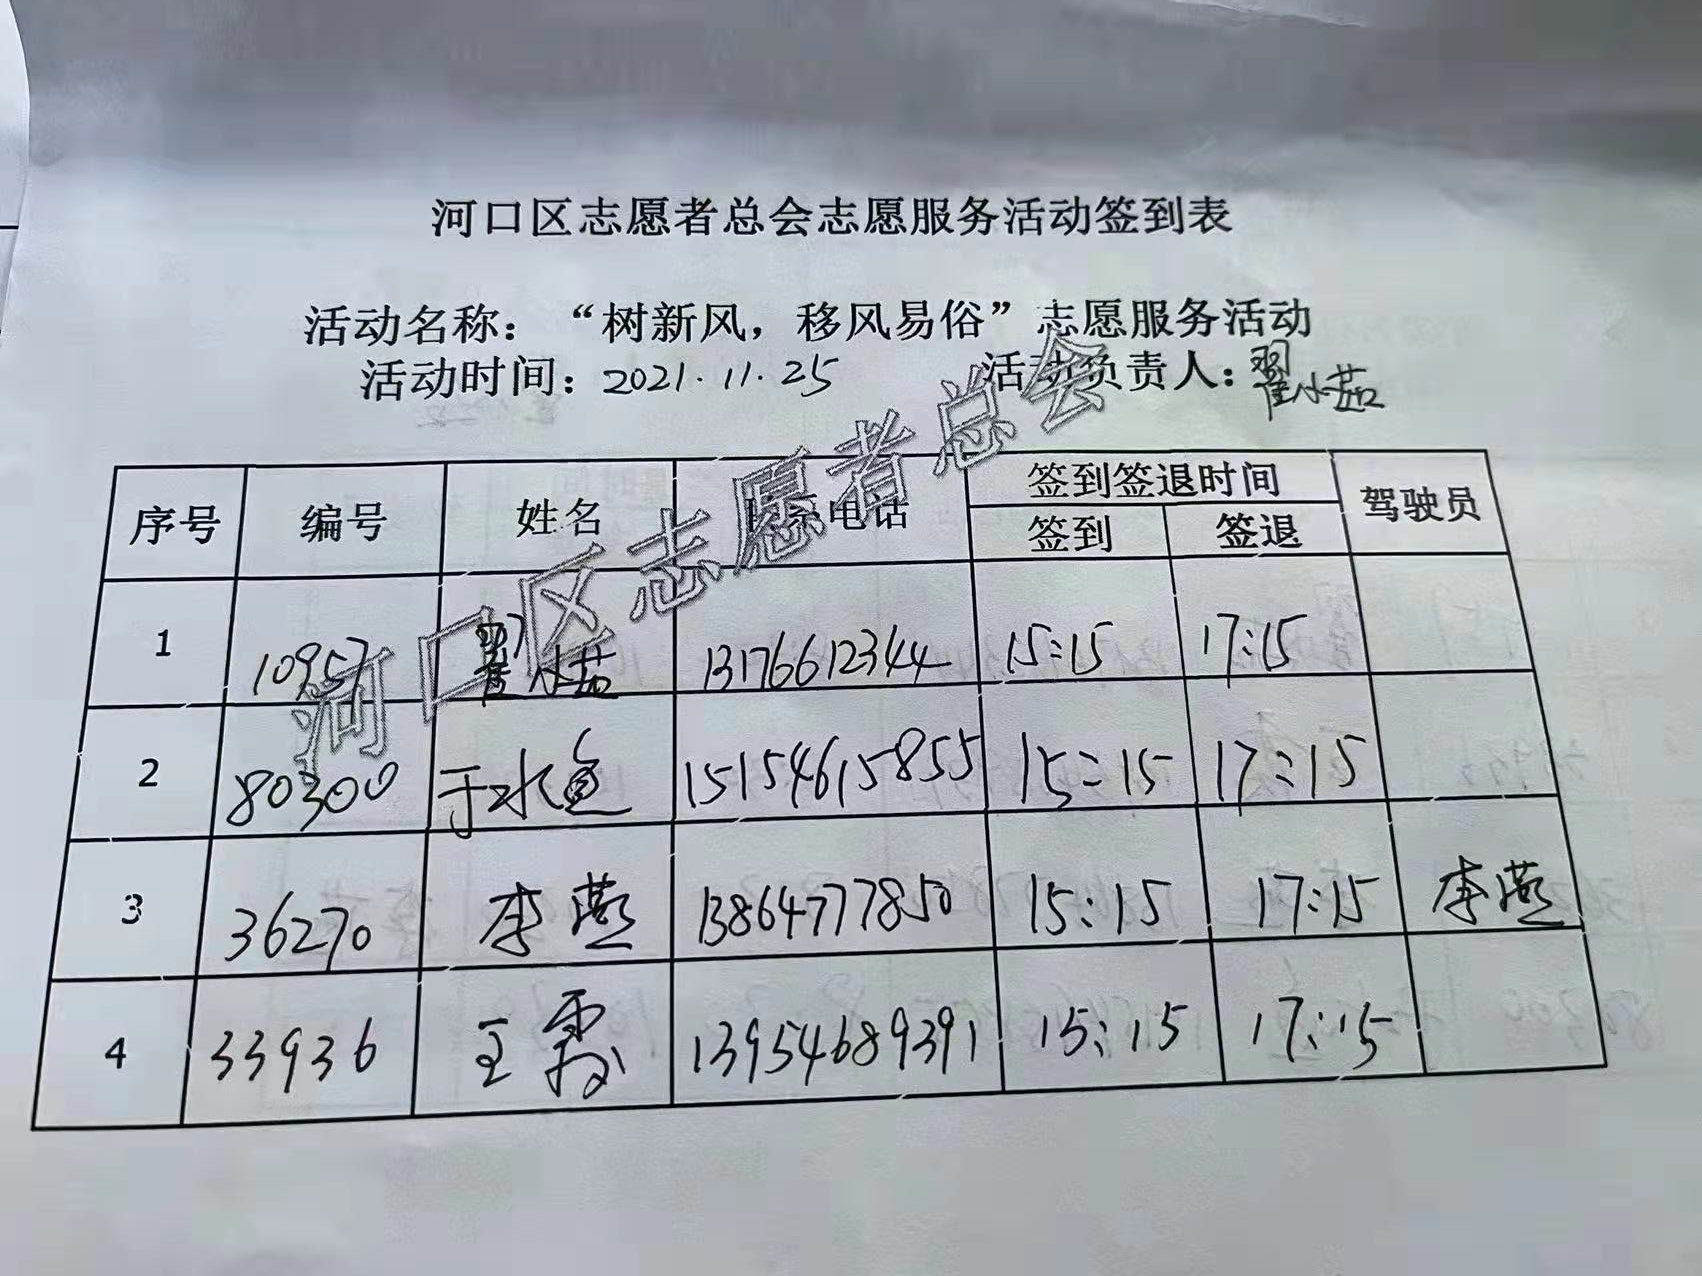 河口区志愿者总会志愿服务活动签到表
活动名称：“树新风，移风易俗”志愿服务活动
活动时间：2021.11.25 活动负责人：翟小茹
序号 编号 姓名 联系电话 签到签退时间 驾驶员
签到 签退
1 10957 翟小茹 13176612344 15:15 17:15
2 80300 于水鱼 15154615855 15:15 17:15
3 36270 李燕 13864777850 15:15 17:15 李燕
4 33936 王霞 13954689391 15:15 17:15
河口区志愿者总会